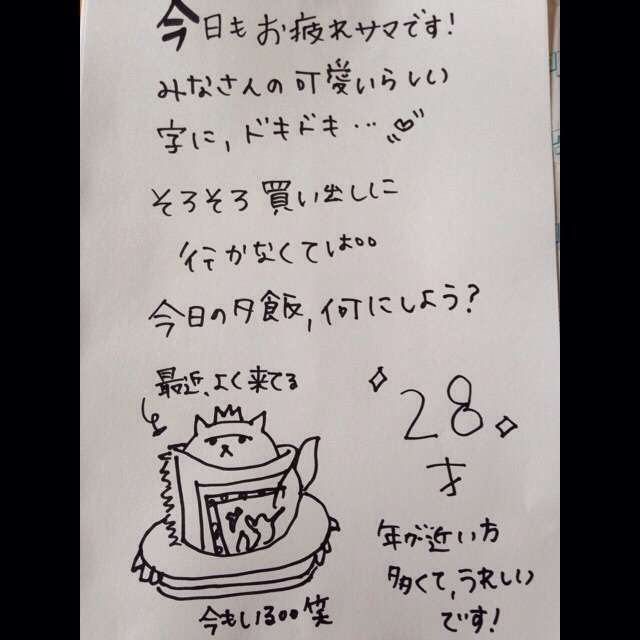 今日もお疲れサマです!
みなさんの可愛いらしい
字に,ドキドキ…
そろそろ買い出しに
行かなくては。。
今日の夕飯,何にしよう?
最近、よく来てる
28
才
年が近い方
多くて,うれしい
です!
今もいる。。笑